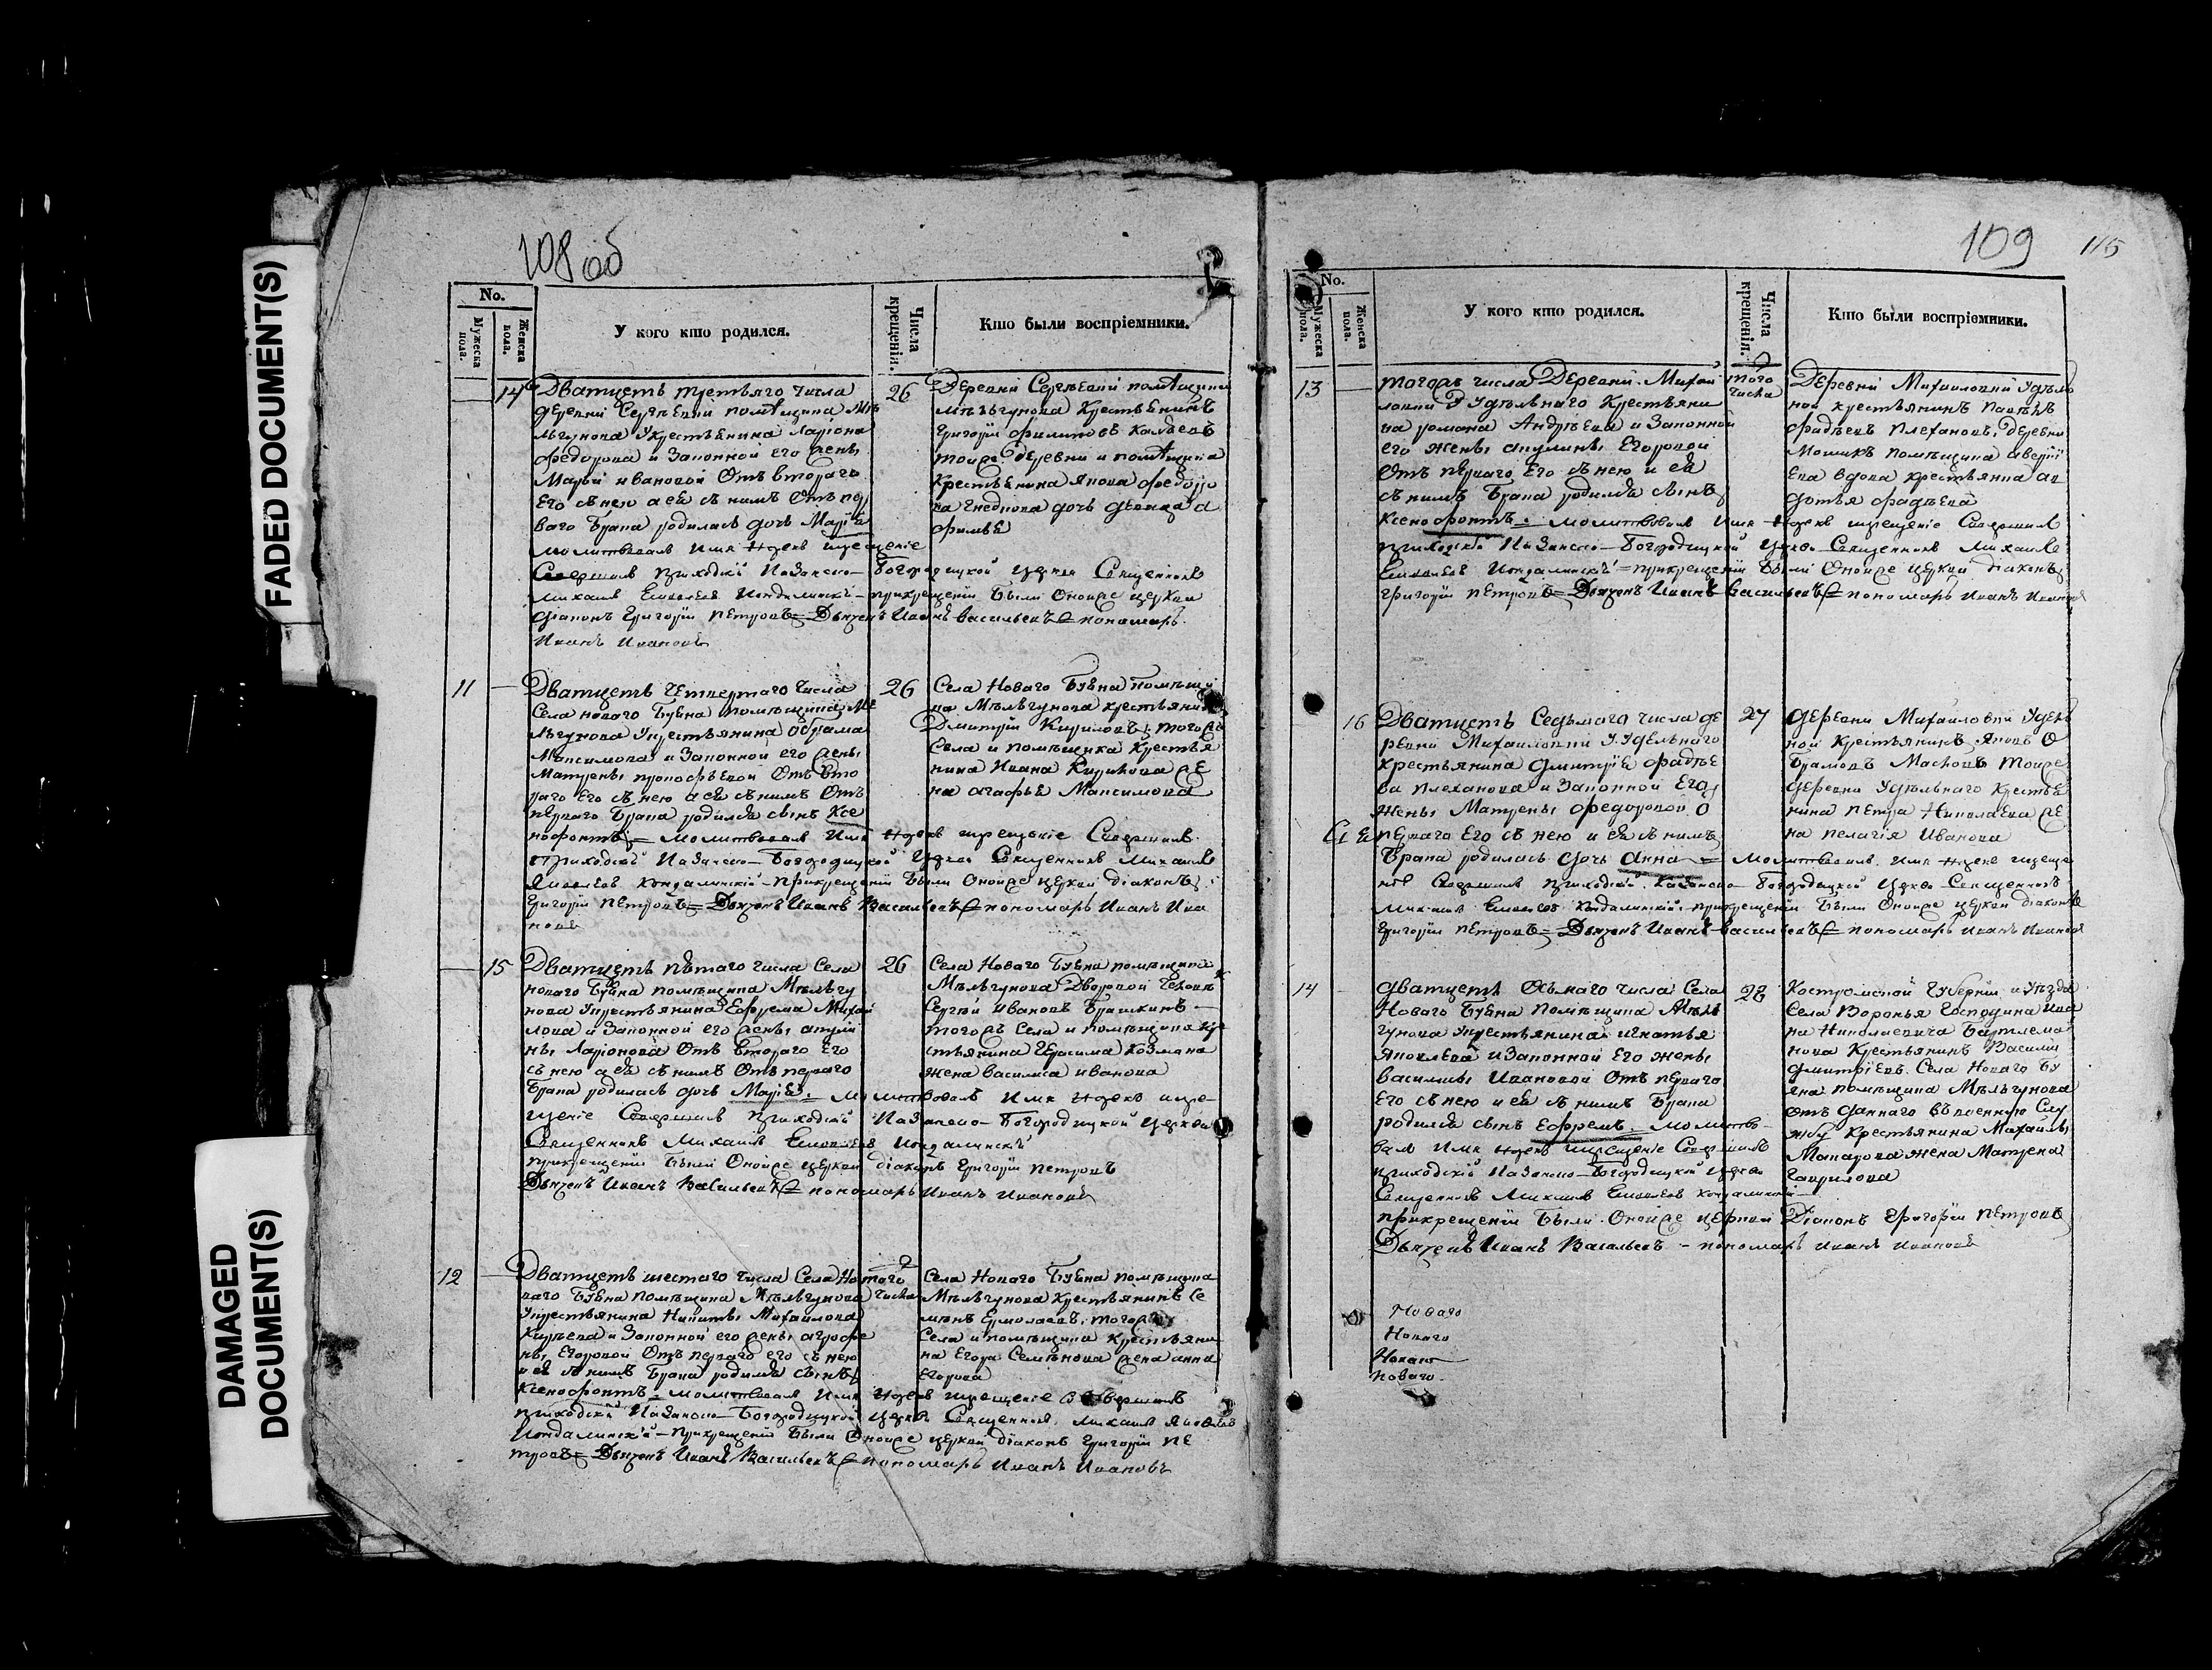 FADED DOCUMENT(S)
DAMAGED
DOCUMENT(S)
108 об
No.
Мужеска пола.
Женска пола.
У кого кто родился.
Числа крещенія.
Кто были воспріемники.
14
Дватцеть третьяго числа
деревни Сергѣевки помѣщика Мѣ
льгунова Укрестьянина Ларіона
Федорова и Законной его жены
Марьи ивановой Отъ втораго
Его съ нею а ея съ нимъ Отъ пер
ваго брака родилась дочь Марія
молитвовалъ имя нарекъ икрещеніе
Совершилъ приходскій Казанско-Богородицкой церкви Священникъ
михаилъ Кондалинскій - прикрещеніи были Оноиже церкви
діаконъ Григорій Петровъ = Дьячекъ Иванъ Васильевъ = пономарь
Иванъ Ивановъ
26
Деревни Сергѣевки помѣщика
мѣльгунова Крестьянинъ
Григорій Филиповъ
тоиже деревни и помѣщика
Крестьянина Якова Федоро
ва дочь девица
11
Дватцеть Четвертаго числа
Села новаго Буяна помѣщика Мѣ
льгунова Укрестьянина Абрама
Максимова и Законной его жены
Матрены прокофьевой Отъ вто
раго Его съ нею а ея съ нимъ Отъ
перваго брака родился сынъ Ксе
нофонтъ = молитвовалъ имя нарекъ икрещеніе Совершилъ
приходскій Казанско-Богородицкой церкви Священникъ Михаилъ
Яковлевъ Кондалинскій - прикрещеніи были Оноиже церкви діаконъ
Григорій Петровъ = Дьячекъ Иванъ Васильевъ = пономарь Иванъ Ива
новъ
26
Села Новаго Буяна помѣщи
ка Мѣльгунова крестьянинъ
Дмитрій Кириловъ, тогоже
Села и помѣщика Крестья
нина Ивана Кирилова же
на Агафья Максимова
15
Дватцеть пятаго числа Села
новаго Буяна помѣщика Мѣльгу
нова Укрестьянина Ефрема Михай
лова и Законной его жены
ны Ларіоновой Отъ втораго Его
съ нею а ея съ нимъ Отъ перваго
брака родилась дочь Марія = молитвовалъ имя нарекъ икре-
щеніе Совершилъ приходскій Казанско-Богородицкой церкви
Священникъ Михаилъ Кондалинскій
прикрещеніи были Оноиже церкви діаконъ Григорій Петровъ
Дьячекъ Иванъ Васильевъ = пономарь Иванъ Ивановъ
26
Села Новаго Буяна помѣщика
Мѣльгунова Дворовой человекъ
Сергѣй Ивановъ Брашкинъ -
тогожъ Села и помѣщика кре
стьянина Герасима Козмана
жена василиса иванова
12
Дватцеть шестаго числа Села Но
ваго Буяна помѣщика Мѣльгунова
Укрестьянина Никиты Михайлова
и Законной его жены агрофе
ны Егоровой Отъ перваго его съ нею
и ея съ нимъ брака родился сынъ
Ксенофонтъ = молитвовалъ имя нарекъ икрещеніе Совершилъ
приходскій Казанско-Богородицкой церкви Священникъ михаилъ Яковлевъ
Кондалинскій - прикрещеніи были Оноиже церкви діаконъ Григорій Пе
тровъ = Дьячекъ Иванъ Васильевъ = пономарь Иванъ Ивановъ
того
числа
Села Новаго Буяна помѣщика
Мѣльгунова Крестьянинъ Се
менъ Ермолаевъ, тогожъ
Села и помѣщика Крестьяни
на Егора Семенова жена анна
Егорова
109
115
No.
Мужеска пола.
Женска пола.
У кого кто родился.
Числа крещенія.
Кто были воспріемники.
13
тогожъ числа Деревни Михай
ловки Уудѣльнаго Крестьяни
на романа Андрѣева и Законной
его жены акулины Егоровой
Отъ перваго Его съ нею и ея
съ нимъ брака родился сынъ
Ксенофонтъ = молитвовалъ имя нарекъ икрещеніе Совершилъ
приходскій Казанско-Богородицкой церкви Священникъ Михаилъ
Кондалинскій = прикрещеніи были Оноиже церкви діаконъ
григорій Петровъ = Дьячекъ Иванъ Васильевъ = пономарь Иванъ Ивановъ
того
числа
Деревни Михаиловки Удѣль
ной крестьянинъ
фадѣевъ Плехановъ, Деревни
помѣщика
вдова крестьянка ав
дотья фадѣева
16
Дватцеть Седьмаго числа де
ревни Михаиловки Уудельнаго
крестьянина Дмитрія фадѣе
ва Плеханова и Законной Его
жены Матрены Федоровой О
перваго Его съ нею и ея съ нимъ
брака родилась дочь Анна = молитвовалъ имя нарекъ икреще
ніе Совершилъ приходскій Казанско-Богородицкой церкви Священникъ
михаилъ Кондалинскій прикрещеніи были Оноиже церкви діаконъ
Григорій Петровъ = Дьячекъ Иванъ Васильевъ = пономарь Иванъ Ивановъ
27
деревни Михаиловки Удель
ной Крестьянинъ Яковъ О
брамовъ Масловъ тоиже
деревни Удѣльнаго Крестья
нина Петра Николаева же
на пелагія Иванова
14
дватцеть Осьмаго числа Села
Новаго Буяна Помѣщика Мѣль
гунова Укрестьянина игнатья
Яковлева и Законной Его жены
василисы Ивановой Отъ перваго
Его съ нею и ея съ нимъ брака
родился сынъ Ефремъ = молитво-
валъ имя нарекъ икрещеніе Совершилъ
приходскій Казанско-Богородицкой церкви
Священникъ Михаилъ Кондалинскій
прикрещеніи были Оноиже церкви Діаконъ Григорій Петровъ
Дьячекъ Иванъ Васильевъ - пономарь Иванъ Ивановъ
28
Костромской Губерніи и Уѣзда
Села Воронья Господина Ива
на Николаевича Бартлема
нова Крестьянинъ Василій
дмитріевъ. Села Новаго Бу
яна помѣщика Мѣльгунова
отъ даннаго въ военную Слу
жбу Крестьянина Михайлы
Макарова жена Матрена
Гаврилова
Новаго
Новаго
Новаго
Новаго